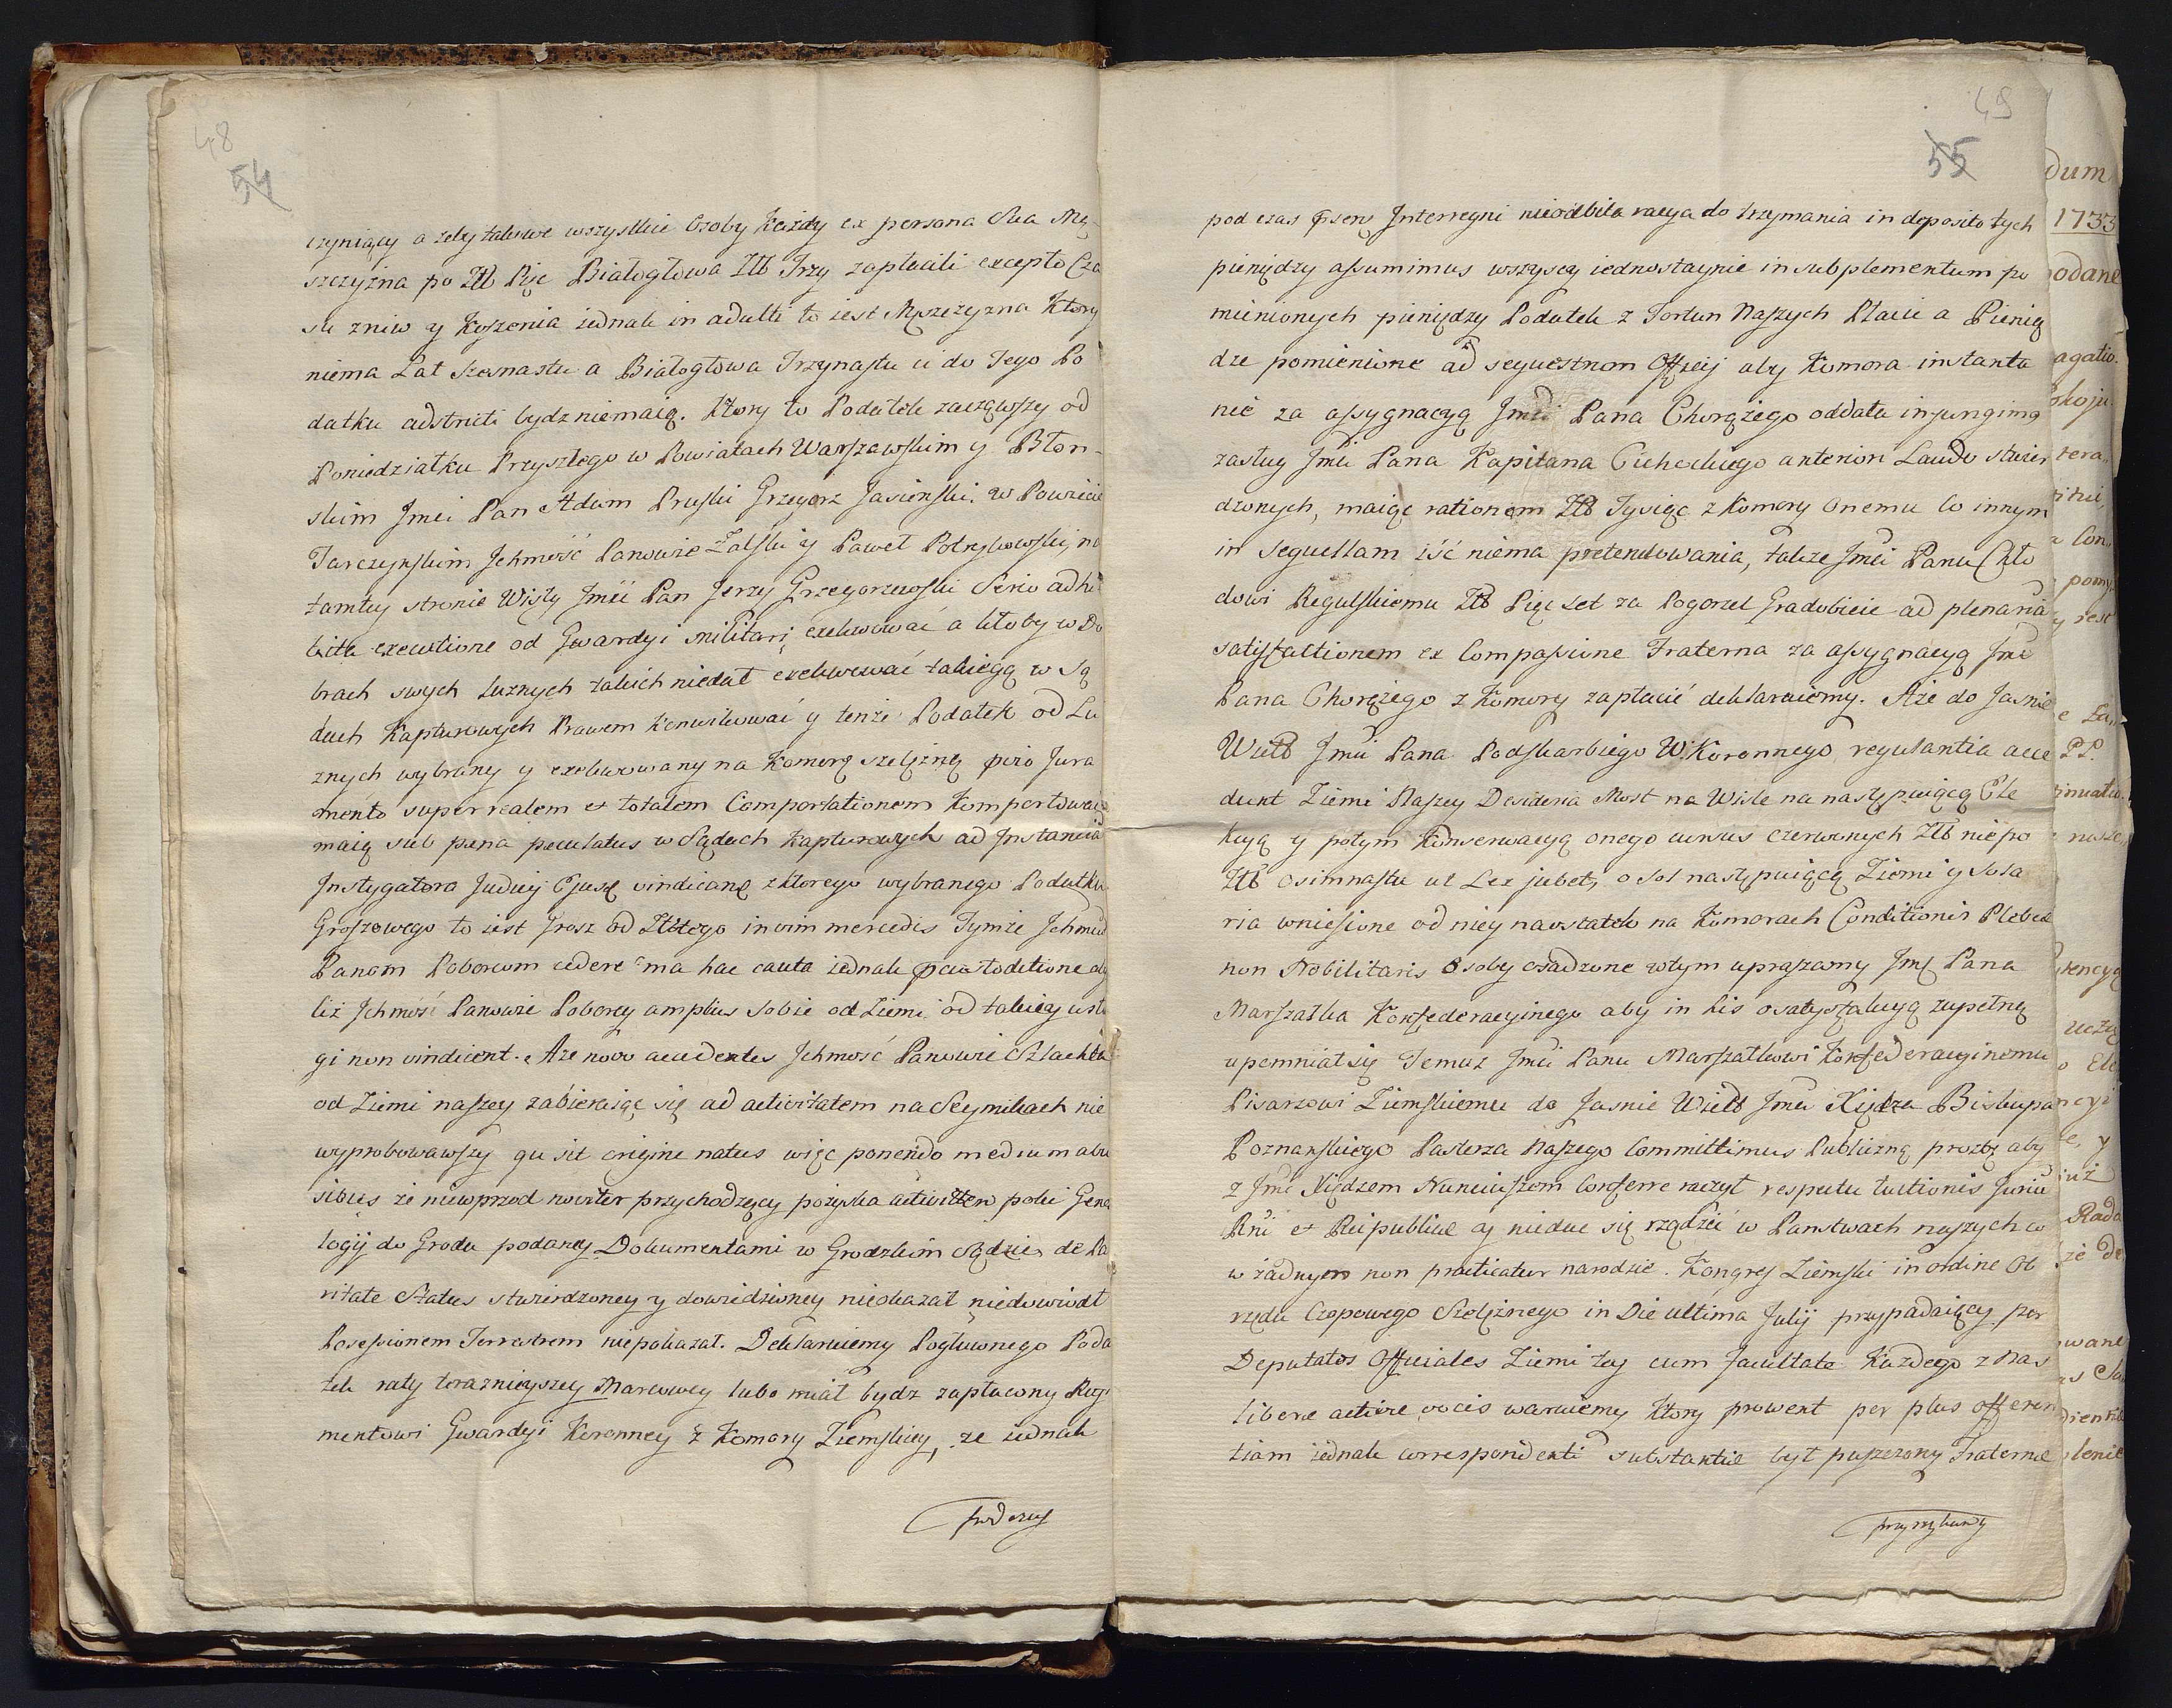 48
54
czyniący a żeby takowe wszystkie Osoby Każdy ex persona Sua Mę-
szczyzna po Zł Pięc Białogłowa Złł Trzy zapłacili excepto Cza
su zniw y Koszenia iednak in adulti to iest Męszczyzna Ktory
niema Lat Szesnastu a Białogłowa Trzynastu ci do Tego Po
datku adstricti bydz niemaią. Ktory to Podatek zacząwszy od
Poniedziałku Przyszłego w Powiatach Warszawskim y Błon-
skim Jmci Pan Adam Pruski Grzegorz Jasienski. w Powiecie
Tarczynskim Jchmość Panowie Zalski y Paweł Potrykowski, na
tamtey stronie Wisły Jmci Pan Jerzy Grzegorzewski Serio adhi
bita execution e od Gwardyi militari exekwować a ktoby w Do
brach swych luznych takich niedał exekwować takiego w Są
dach Kapturowych Prawem Konwikować y tenże Podatek od Lu
znych wybrany y exekwowany na Komorę szelężną prio Jura
mento super realem et totalem Comportationem Komportować
maią sub pæna peculatus w Sądach Kapturowych ad Instantia
Instygatora Judicij Ejusq vindicane z ktorego wybranego Podatku
Groszowego to iest Grosz od Złłtego in vim mercedis Tymże Jchmć
Panom Poborcom cedere ma hac cauta iednak præcustoditione aby
liż Jchmość Panowie Poborcy amplius Sobie od Ziemi od takiey usłu
gi non vindicent. Aże novo accedentes Jchmość Panowie Szlachta
od Ziemi naszey zabieraiąc się ad activitatem na Seymikach nie
wyprobowawszy qu sit origine natus więc ponendo medium abu
sibus że niewprzod noviter przychodzący pozyska activitatem poki Gene
logij do Grodu podaney Dokumentami w Grodzkim Sądzie de Pa
ritate Status stwierdzoney y dowiedzioney nieokazał niedowiodł
Possessionem Terrestrem niepokazał. Deklaruiemy Pogłownego Poda
tek raty teraznieyszey Marcowey lubo miał bydz zapłacony Regi
mentowi Gwardyi Koronney z Komory Ziemskiey, ze iednak
podczas
49
55
pod czas præsens Interregni nieodbita racya do trzymania in deposito tych
pieniędzy assumimus wszyscy iednostaynie in subplementum po
mienionych pieniędzy Podatek z Fortun Naszych Płacic a Pienią
dze pomienione ad sequestrum Officij aby Komora instanta
nie za assygnacyą Jmci Pana Chorążego oddała injungimq
zasług Jmci Pana Kapitana Cicheckiego anteriori Laudo stwier
dzonych, maiąc rationem Złł Tysiąc z Komory Onemu Co innym
in Sequellam iść niema pretendowania, także Jmci Panu Chło
dowi Regulskiemu Złł Pięc Set za Pogorzel Gradobicie ad plenaria
satisfactionem ex Compassione Fraterna za assygnacyą Jmć
Pana Chorążego z Komory zapłacić deklaruiemy. Aże do Jasnie
Wielł Jmci Pana Podskarbiego W. Koronnego regulantia acce
dunt Ziemi Naszey Desideria Most na Wisle na następuiącą Ele
kcyą y potym Konserwacyą onego cursus czerwonych Złł niepo
Złł osimnastu ut Lex jubet, o sol następuiącą Ziemi y Sola
ria wniesione od niey naostatek na Komorach Conditionis Plebeæ
non Nobilitaris Osoby osadzone w tym upraszamy Jmć Pana
Marszałka Konfederacyinego aby in his o satysfakcyą zupełną
upomniał się Temuz Jmci Panu Marszałkowi Konfederacyinemu
Pisarzowi Ziemskiemu do Jasnie Wielł Jmci Xiędza Biskupa
Poznanskiego Pasterza Naszego Committimus Publiczną prozbę aby
z Jmć Xiędzem Nunciuszem Conferre raczył respectu tuitionis Juriu
Rni et Reipublicæ ay niedac się rządzić w Panstwach naszych co
w żadnym non practicatur narodzie. Kongres Ziemski in ordine Ob
rzędu Czopowego Szelężnego in Die ultima Julij przypadaiący per
Deputatos Officiales Ziemi tey cum facultate Każdego z Nas
liberæ activæ vocis waruiemy Ktory prowent per plus offeren
tiam iednak correspondenti substantiæ był puszczony Fraternæ
przyrzekamy
dum
1733
podane
agatio.
okoju
tera„
a Con„
pomy„
y rest
e La„
PP.
nasze,
uczą
o Ele
ncyi
le, y
iuż
Rada
że de
owane
as Sa
olenie